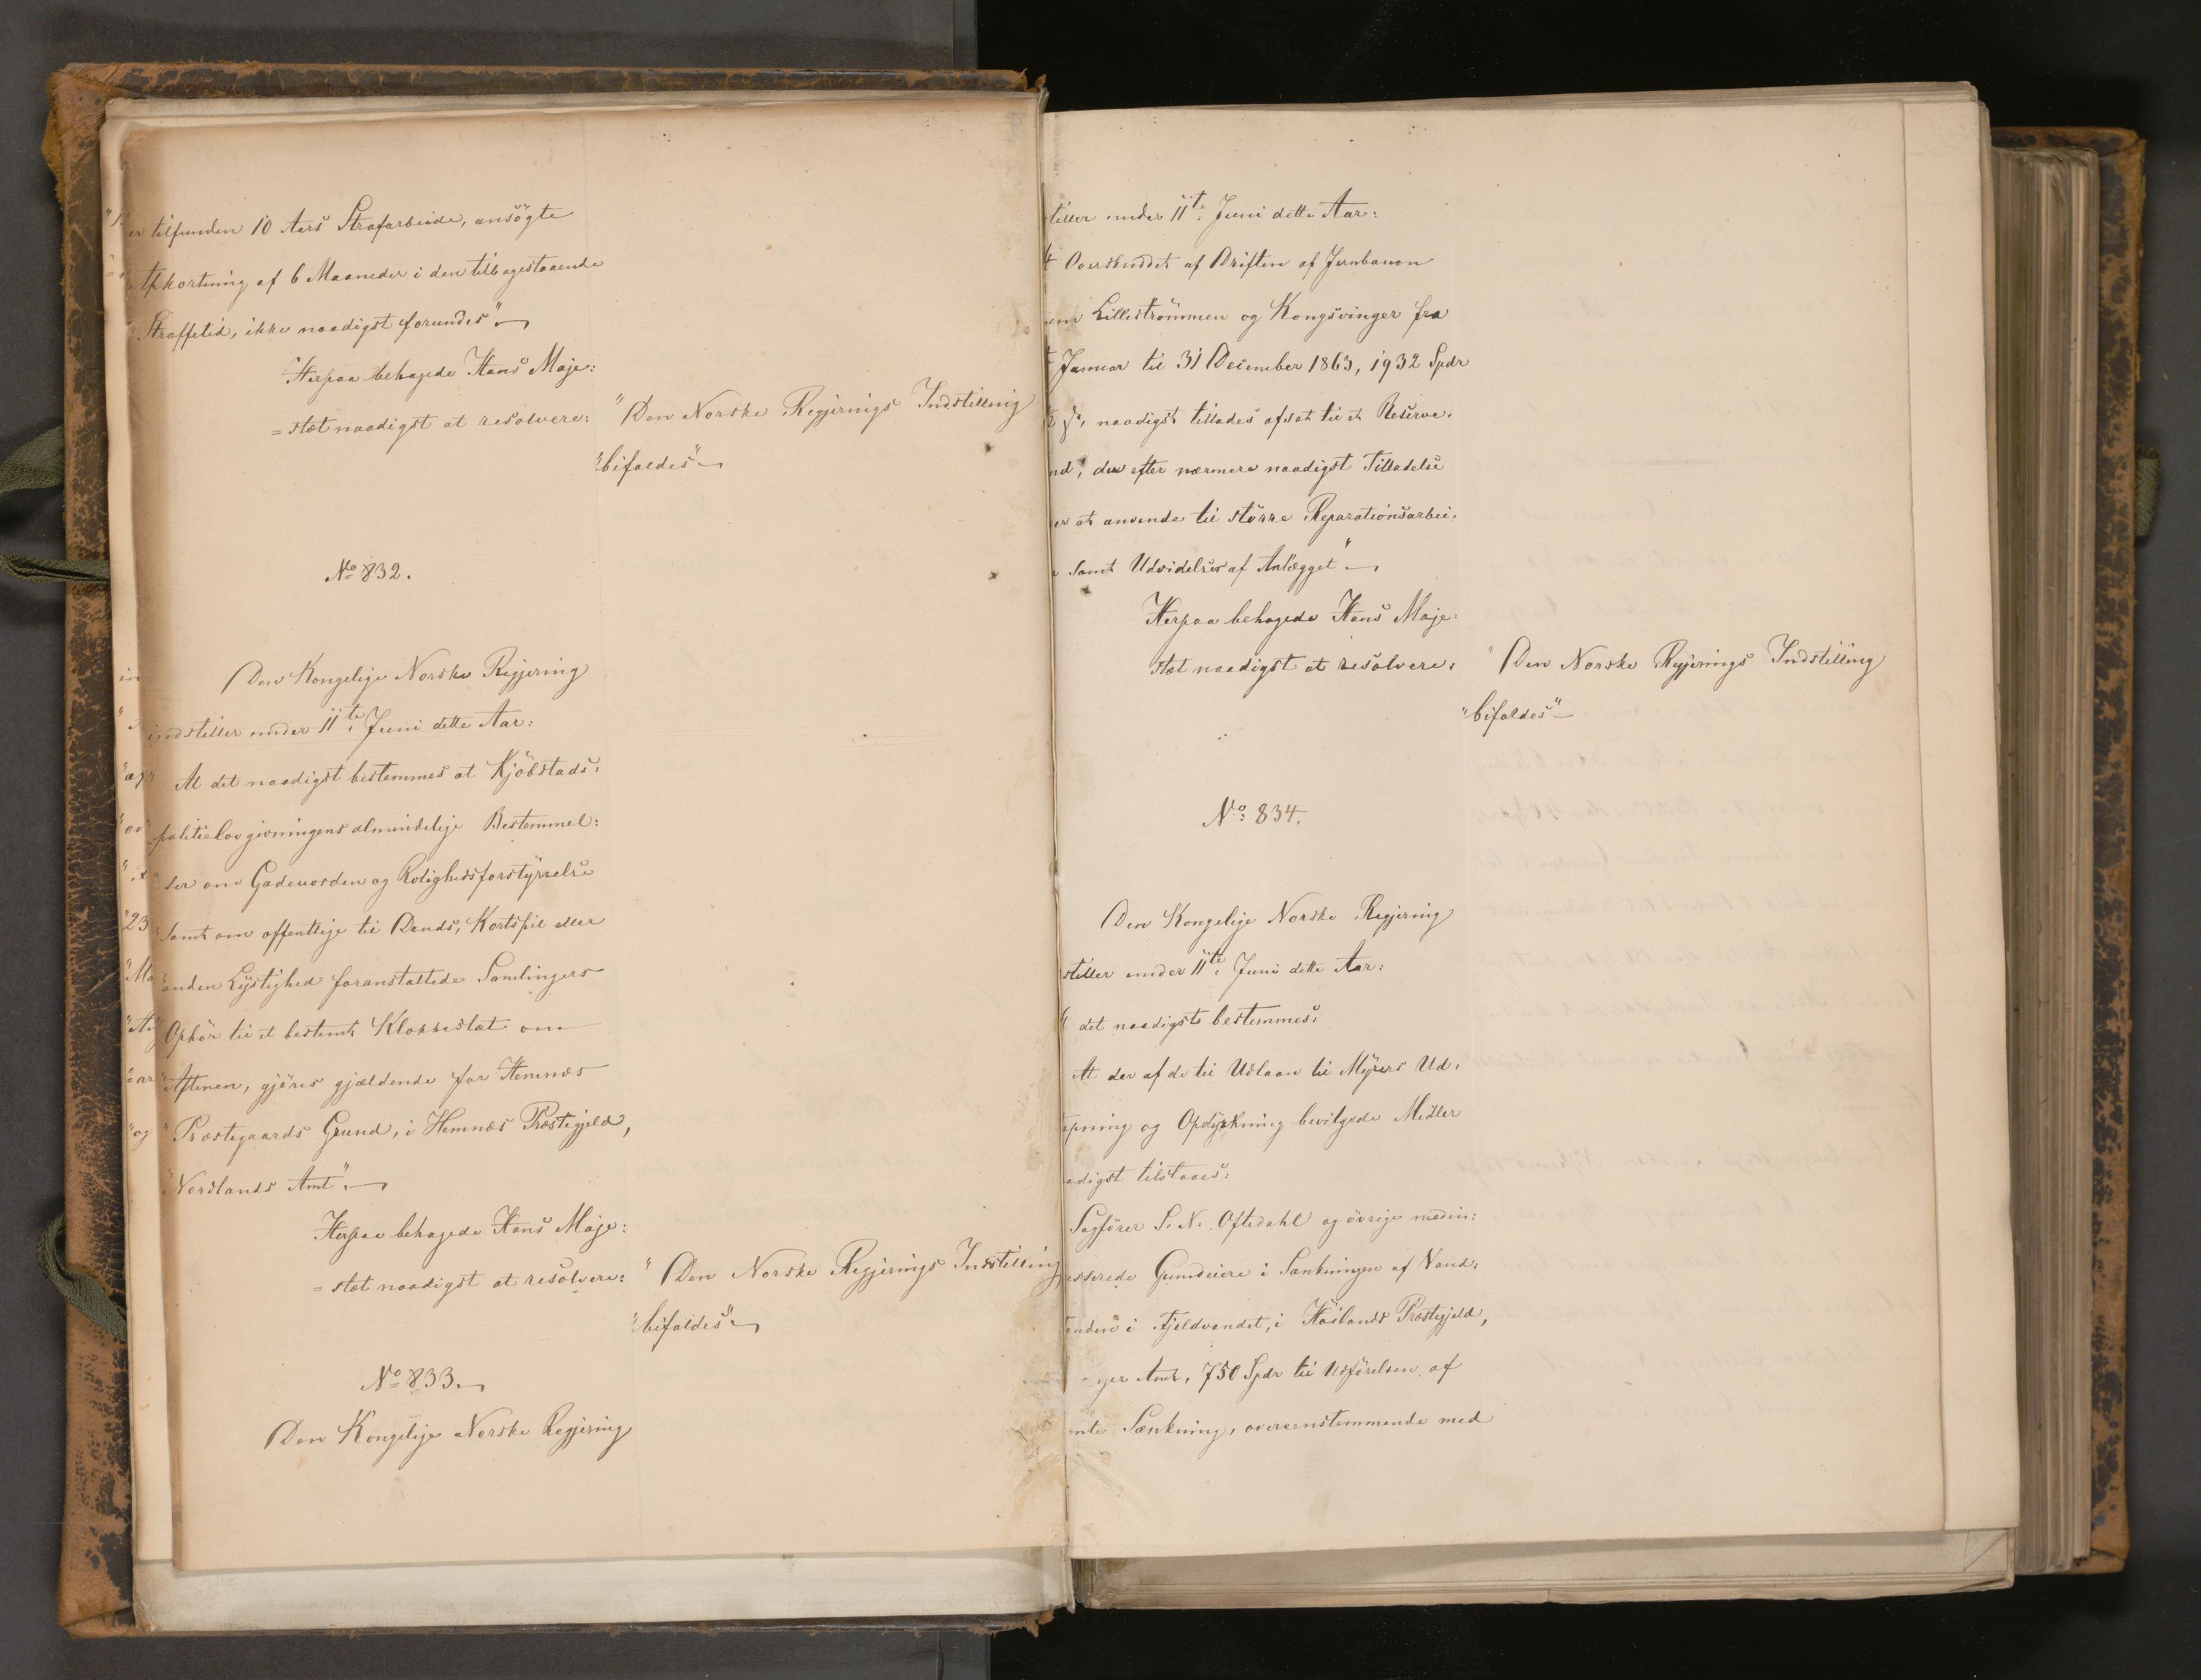 er tilfunden 10 Aars Strafarbeide, ansögte
Afkortning af 6 Maaneder i den tilbagestaaende
Straffetid, ikke naadigst forundes"
Herpaa behagede Hans Maje:
=stæt naadigst at resolvere: "Den Norske Regjerings Indstilling
"bifaldes"
No 832.
Den Kongelige Norske Regjering
indstiller under 11te Juni dette Aar:
" At det naadigst bestemmes at Kjöbstads:
"politielovgivningens almindelige Bestemmel:
"ser om Gadeuorden og Rolighedsforstyrrelse
"samt om offentlige til Dands, Kortspil eller
"anden Lystighed foranstaltede Samlingers
"Ophör til et bestemt Klokkeslæt om
"Aftenen, gjöres gjældende for Hemnæs
"Præstegaards Grund, i Hemnæs Præstegjeld,
"Nordlands Amt".
Herpaa behagede Hans Maje:
=stæt naadigst at resolvere: " Den Norske Regjerings Indstilling
"bifaldes"
No 833.
Den Kongelige Norske Regjering
stiller under 11te Juni dette Aar:
t Overskuddet af Driften af Jernbanen
em Lilleströmmen og Kongsvinger fra
Januar til 31 December 1863, 1932 Spdr
naadigst tillades afsat til et Reserve.
nd, der efter nærmere naadigst Tilladelse
er at anvende til större Reparationsarbei.
samt Udvidelser af Anlægget"
Herpaa behagede Hans Maje:
stæt naadigst at resolvere: " Den Norske Regjerings Indstilling
"bifaldes"
No: 834.
Den Kongelige Norske Regjering
stiller under 11te Juni dette Aar:
t det naadigst bestemmes:
At der af de til Udlaan til Myrers Ud.
pning og Opdyrkning bevilgede Midler
adigst tilstaaes:
Sagförer S. N. Oftedahl og övrige medin:
esserede Grundeiere i Sænkningen af Vand:
anden i Fjeldvandet, i Höilands Præstegjeld,
ger Amt, 750 Spdr til Udförelsen af
nte Sænkning, overeenstemmende med